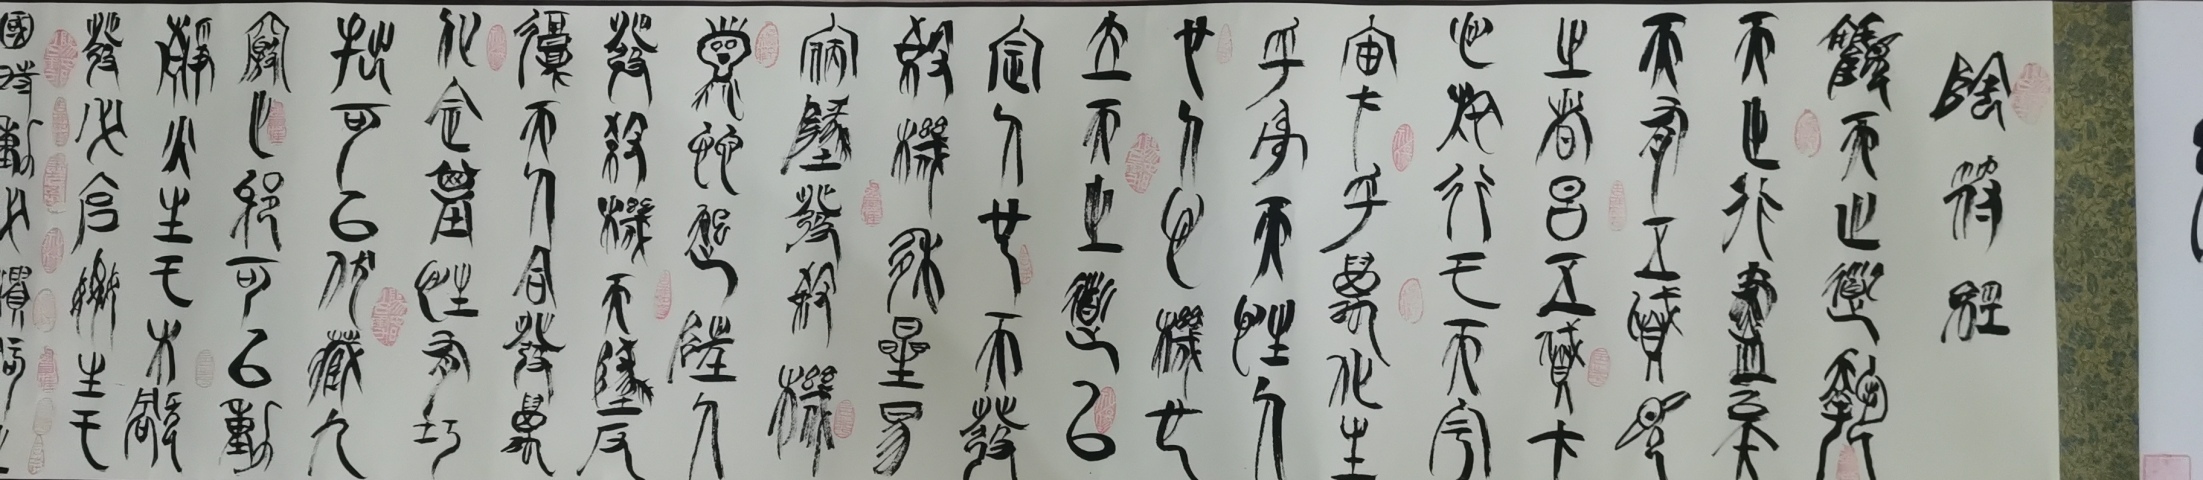 陰符經
觀天之道執
天之行盡矣
天有五賊見
之者昌五賊在
心施行于天宇
宙在乎手萬化生
乎身天性人
也人心機也
立天之道以
定人也天發
殺機移星易
宿地發殺機
龍蛇起陸人
發殺機天地反
覆天人合發萬
化定基性有巧
拙可以伏藏九
竅之邪可以動
靜火生于木禍
發必剋姦生于
國時動必潰知之